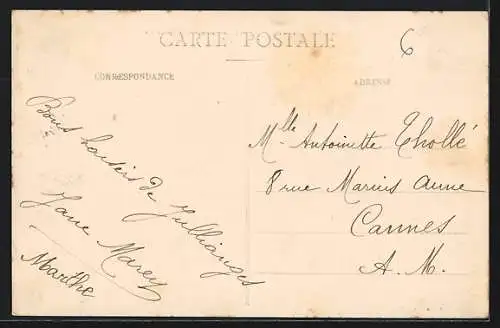 CARTE POSTALE
6
CORRESPONDANCE
ADRESSE
Bons baisers de Jullianges
Jane Marey
Marthe
Mlle Antoinette Thollé
8 rue Marius Aune
Cannes
A. M.